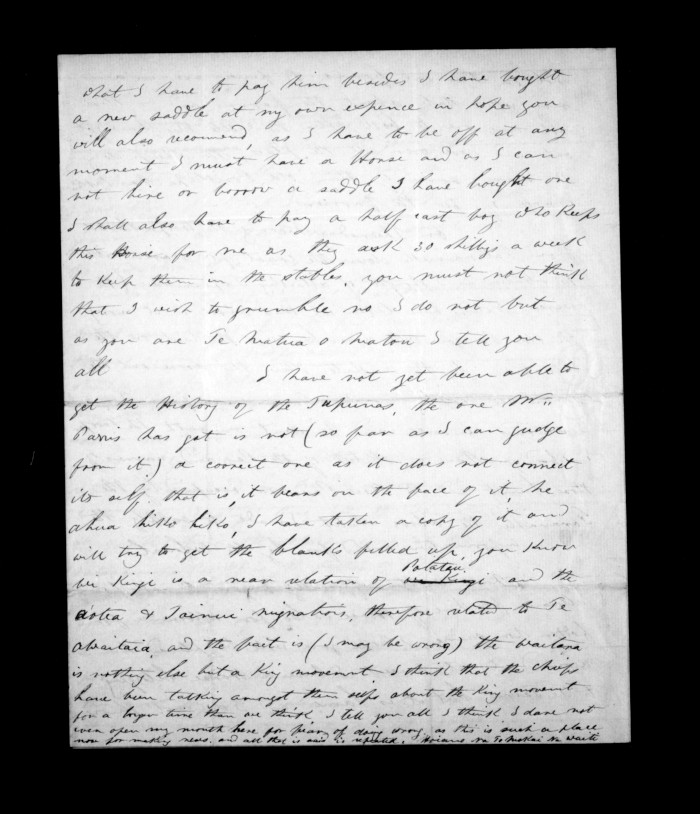 what I have to pay him besides I have bought
a new saddle at my own expence in hope you
will also recomend, as I have to be off at any
moment I must have a Horse and as I can
not hire or borrow a saddle I have bought one
I shall also have to pay a half cast boy who keeps
this Horse for me as they ask 30 shillgs a week
to keep them in the stables. you must not think
that I wish to grumble no I do not but
as you are Te Matua o Matou I tell you
all I have not yet been able to
get the History of the Tupunas, the one Mr
Parris has got is not (so far as I can judge
from it) a correct one as it does not connect
its self. that is, it bears on the face of it, he
ahua hiko hiko, I have taken a copy of it and
will try to get the blanks filled up, you know
Wi Kingi is a near relation of Potatau and the
Aotea & Tainui migrations, therefore related to Te
Awaitaia, and the fact is (I may be wrong) the Waitara
is nothing else but a King movement. I think that the chiefs
have been talking amongst them selfs about the King movement
for a longer time than we think, I tell you all I think I dare not
even open my mouth here for fear of doing wrong as this is such a place
now for making news. and all that is said is repeated. Heianei na To Mokai na Waiti